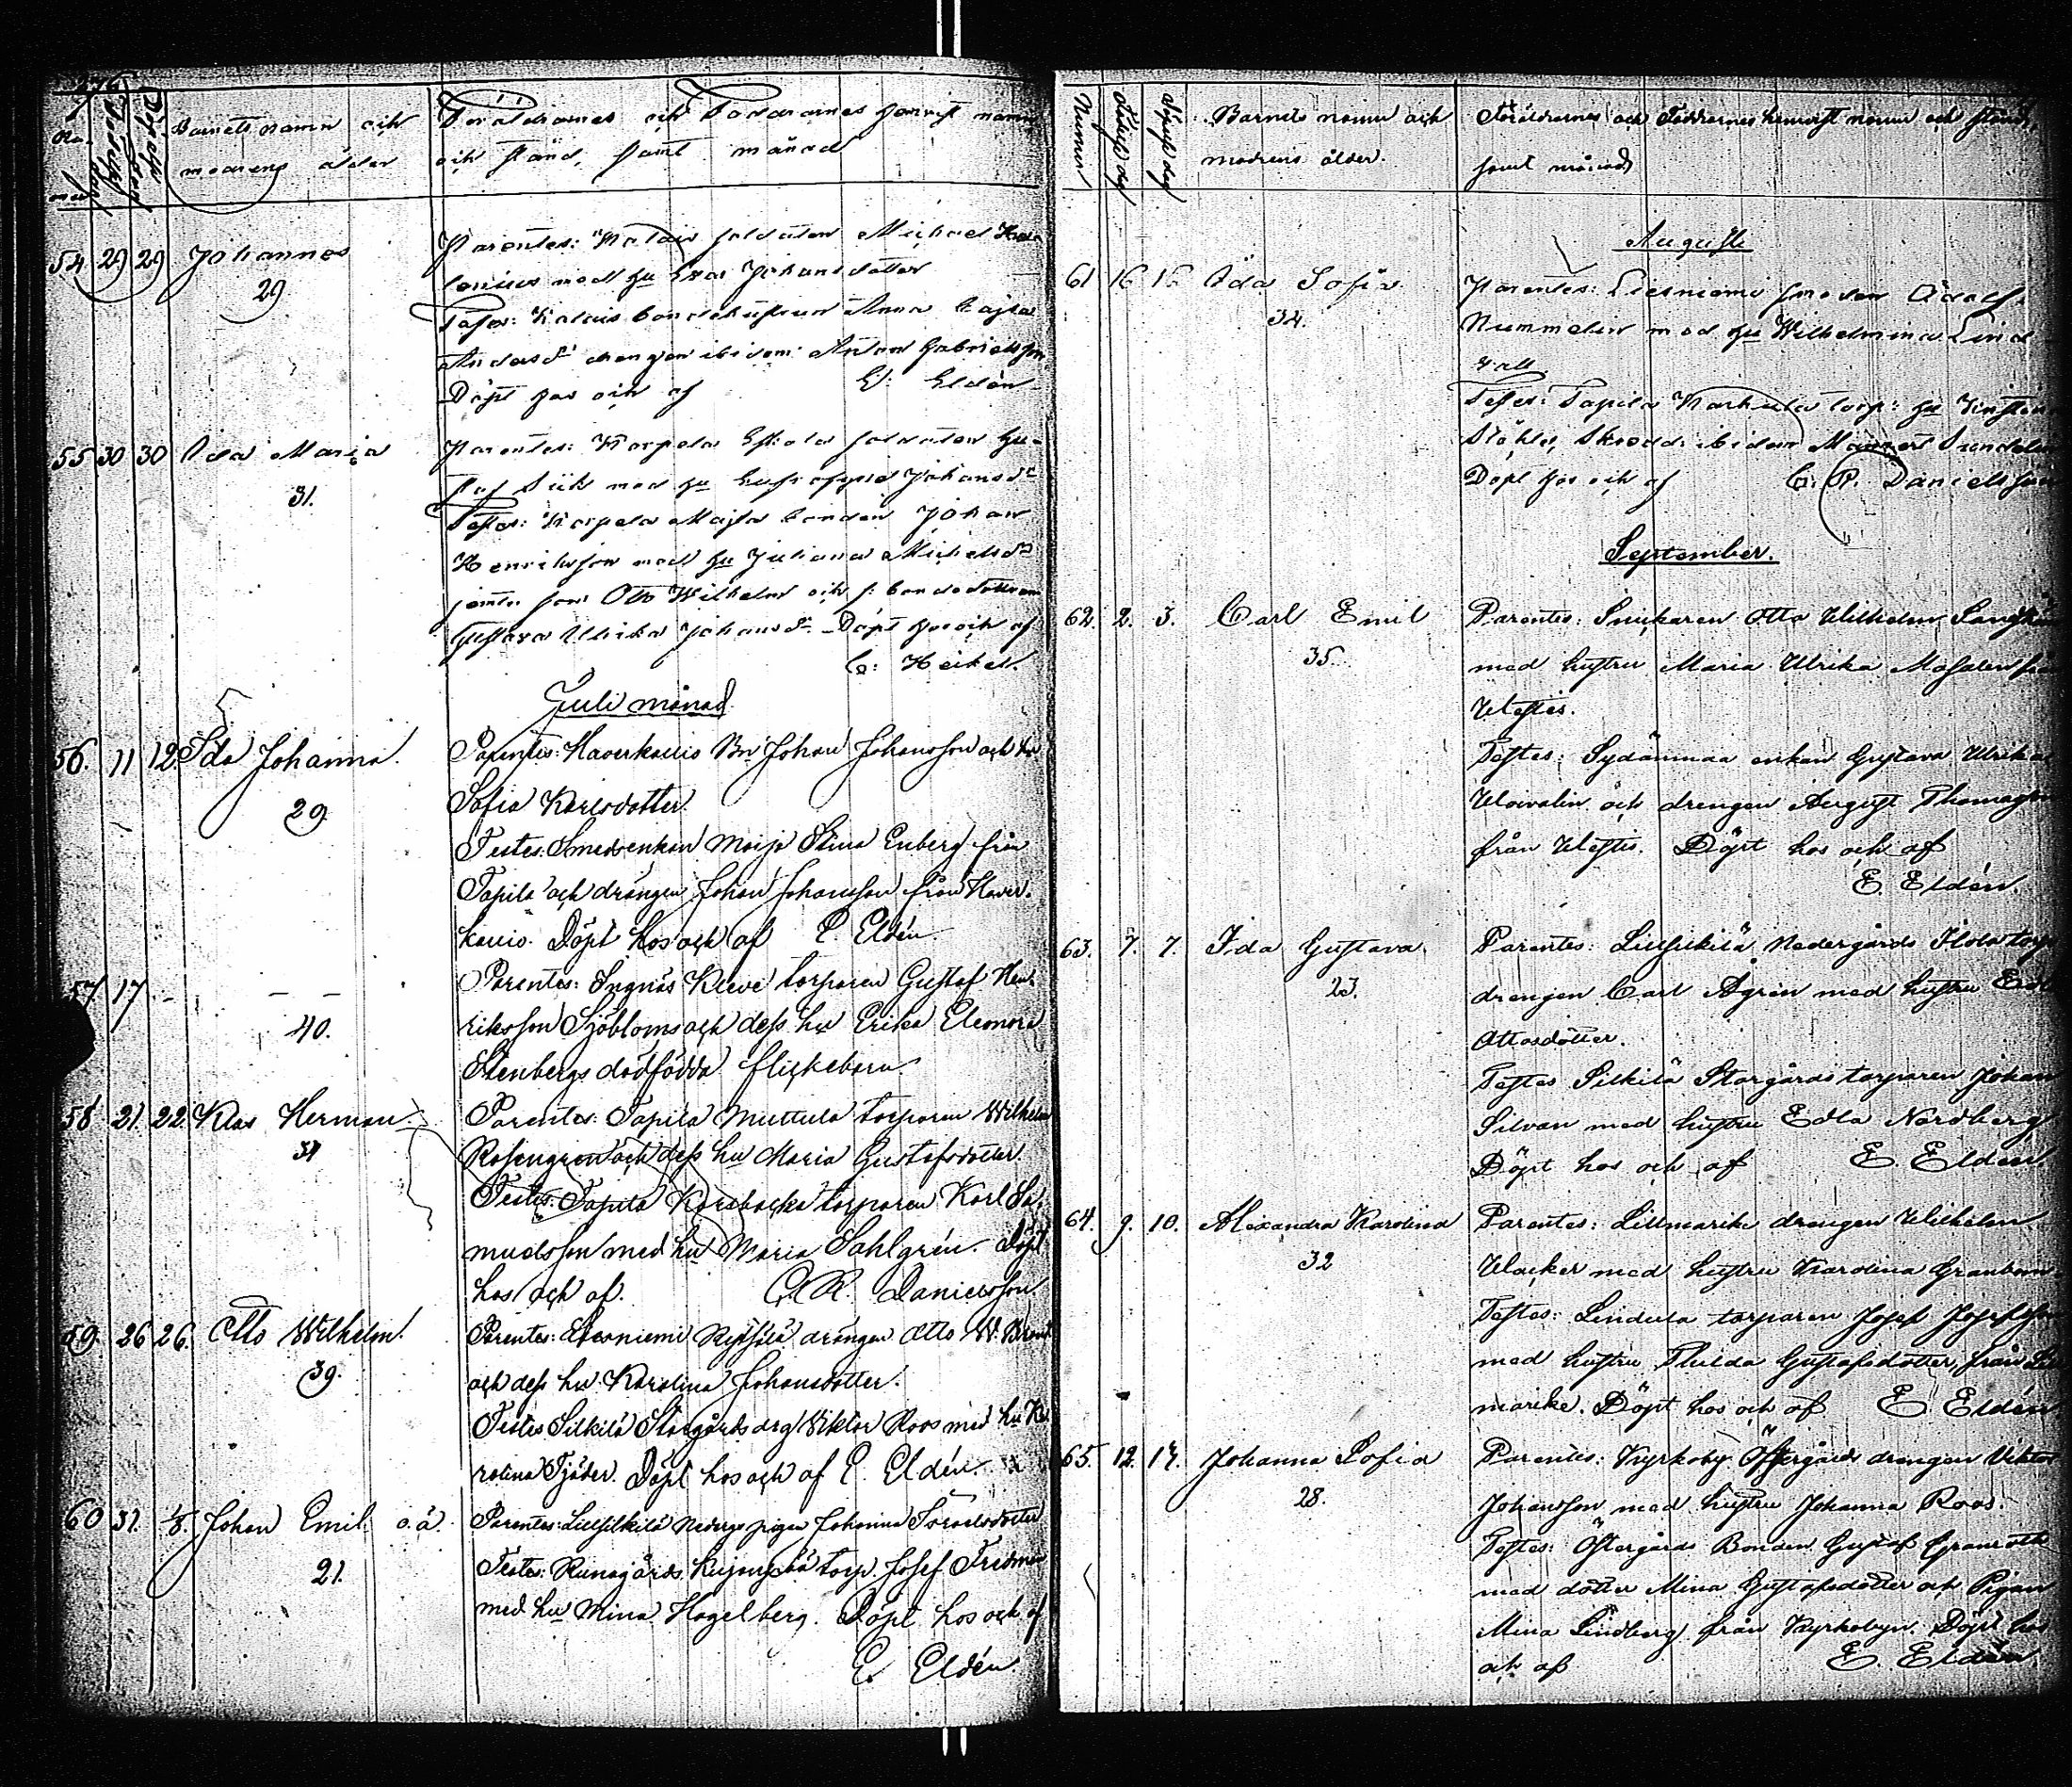 276
Barnets namn och
moderns ålder
Föräldrarnes och Faddrarnes hemvist namn
och stånd, samt månad
54 29 29 Johannes
29
Parentes: Kalais soldaten Michael Hele
lenius med hu Eva Johansdotter
Testes: Kalais bondehustrun Anna Cajsa
Andersdr drengen ibidem Anton Gabrielsson
Döpt hos och af E. Eldén
55 30 30 Ida Maria
31.
Parentes: Karpela soldaten Gu-
staf Siik med hu Eufrosyne Johansdr
Testes: Karpela Majla bonden Johan
Henriksson med hu Juliana Michelsdr
jemte son Otto Wilhelm och f. bondedottren
Gustava Ulrika Johansdr Döpt hos och af
C: Heikel.
Juli månad
56. 11 12. Ida Johanna.
29
Parentes: Haverkauis Bn Johan Johansson och hu
Sofia Karlsdotter.
Testes: Smedsenkan Maija Stina Enberg från
Tapila och drängen Johan Johansson från Haver-
kauis. Döpt hos och af E. Eldén.
57 17 - - -
40.
Parentes: Ingnäs Kleve torparen Gustaf Hen-
riksson Sjöbloms och dess hu Erika Eleonora
Stenbergs dödfödda flickebarn
58 21. 22. Klas Herman.
34
Parentes: Tapila Muttula torparen Wilhelm
Rosengren och dess hu Maria Gustafsdotter.
Testes: Tapila Korsbacka torparen Karl Sa-
muelsson med hu Maria Sahlgrén. Döpt
hos och af. C. R. Danielsson.
59. 26 26. Otto Wilhelm.
39.
Parentes: Liesniemi drängen Otto W. Brand
och dess hu Karolina Johansdotter.
Testes Silkilä Storgårds drg Viktor Roos med hu Ka-
rolina Tjäder. Döpt hos och af E. Eldén.
60 31. 1/8. Johan Emil o. ä.
21.
Parentes: Lillsilkilä Nederg. pigan Johanna Israelsdotter
Testes: Runagårds torp. Josef Fridman
med hu Mina Hagelberg. Döpt hos och af
E. Eldén.
Numer
Födelsedag
Döpelsedag
Barnets namn och
modrens ålder.
Föräldrarnes och Faddrarnes hemvist namn och stånd,
samt månad
Augusti
61 16 16 Ida Sofia.
34.
Parentes: Liesniemi smeden Adolf
Nummelin med hu Wilhelmina Lind-
vall
Testes: Tapila Karhula torp: hu
Ståhle, Skredd: ibidem
Döpt hos och af C. R. Danielsson
September.
62. 2. 3. Carl Emil
35.
Parentes: Snickaren Otto Wilhelm
med hustru Maria Ulrika från
Ulftis.
Testes: Sydänmaa enkan Gustava Ulrika
och drengen August Thomasson
från Ulftis. Döpt hos och af
E. Eldén.
63. 7. 7. Ida Gustava.
23.
Parentes: Lillsilkilä Nedergårds torp
drengen Carl Ågren med hustru Edla
Ottosdotter.
Testes Silkilä Storgårds torparen Johan
Silvan med hustru Edla Nordberg
Döpt hos och af E. Eldén
64. 9. 10. Alexandra Karolina
32
Parentes: Lillmarike drengen Wilhelm
Wacker med hustru Karolina Granbom
Testes: Lindula torparen Josef Josefsson
med hustru Thilda Gustafsdotter, från Lill-
marike. Döpt hos och af E. Eldén
65. 12. 14. Johanna Sofia
28.
Parentes: Kyrkoby Östergårds drengen Viktor
Johansson med hustru Johanna Roos.
Testes: Östergårds Bonden Gustaf Granroth
med dotter Mina Gustafsdotter och Pigan
Mina Lindberg från Kyrkobyn. Döpt hos
och af E. Eldén